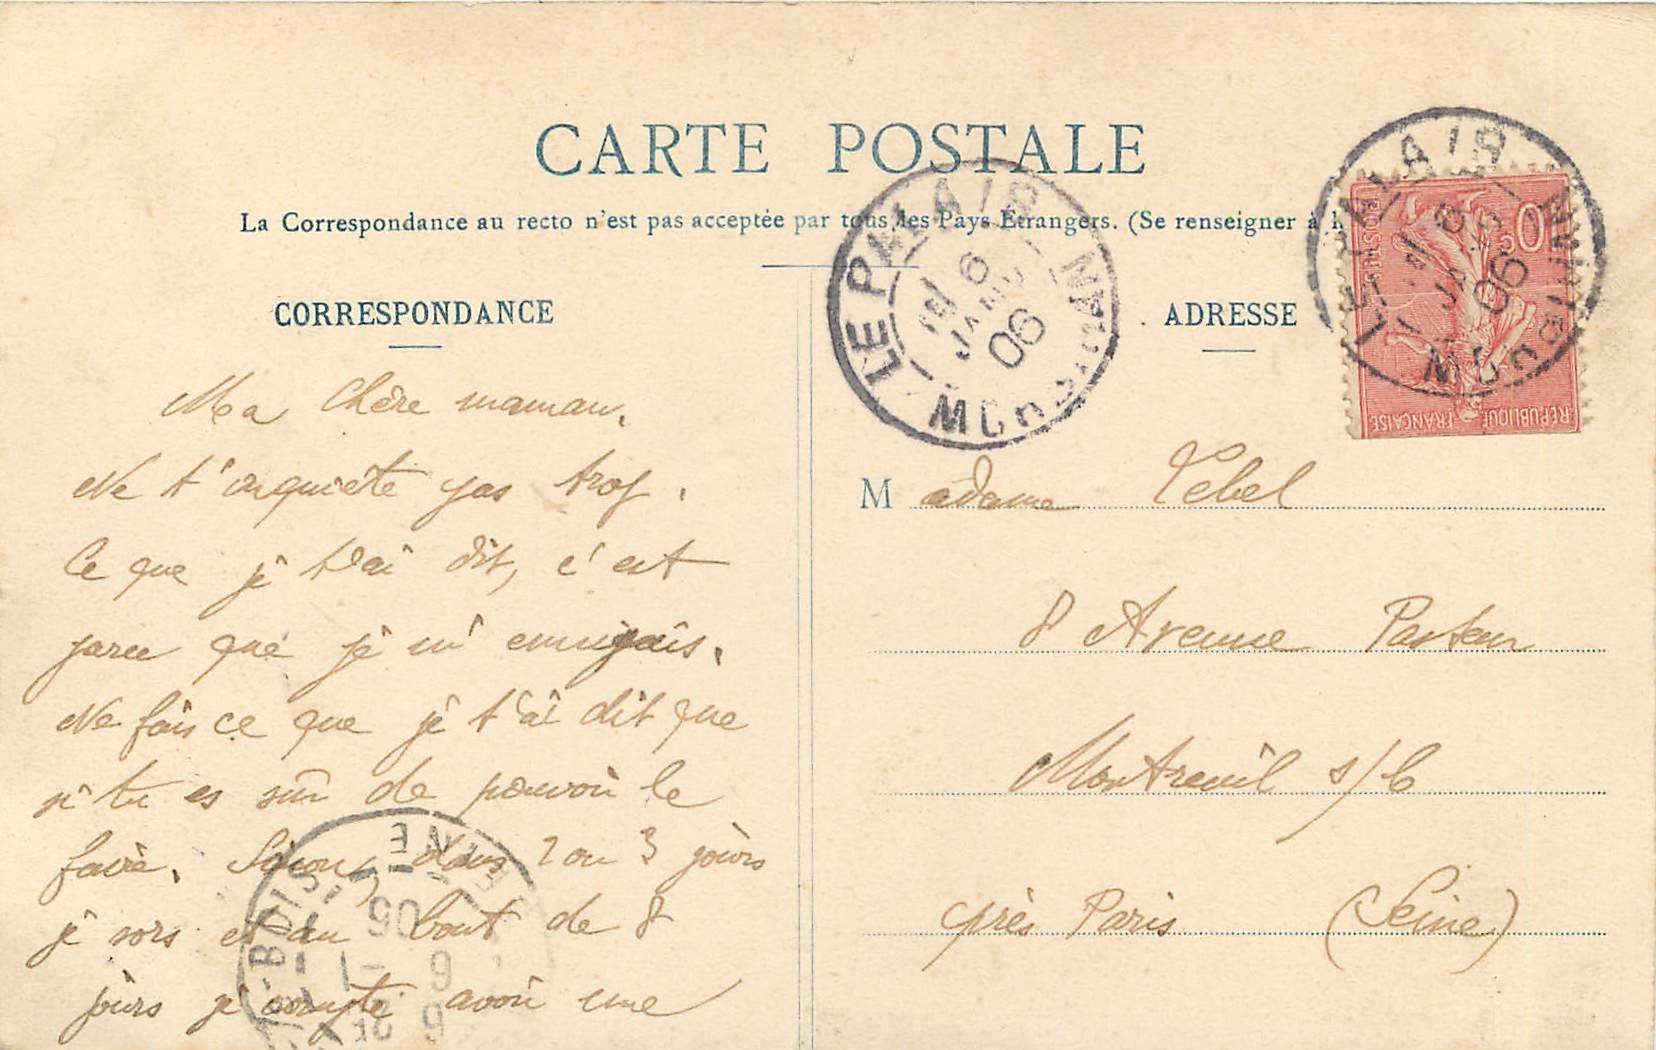 CARTE POSTALE
La Correspondance au recto n'est pas acceptée par tous les Pays Étrangers. (Se renseigner à l
CORRESPONDANCE
Ma chère maman.
Ne t'inquiète pas trop.
Ce que je t'ai dit, c'est
parce que je m'ennuyais.
Ne fais ce que je t'ai dit que
si tu es sûr de pouvoir le
faire. Sinon, dans 2 ou 3 jours
je sors et au bout de 8
jours je compte avoir une
ADRESSE
Madame Tebel
8 Avenue Pasteur
Montreuil s/b
près Paris (Seine)
LE PALAIS
MORBIHAN
6
JANV
06
LE PALAIS
MORBIHAN
6
06
POSTES
10
RÉPUBLIQUE FRANÇAISE
BOIS
SEINE
9 -1
06